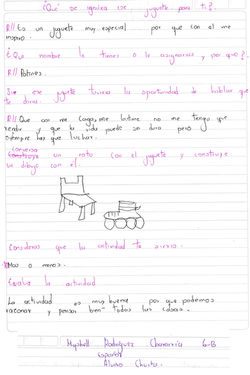 ¿Que significa ese juguete para ti?
R// Es un juguete muy especial por que con el me
inspiro.
¿Que nombre le tienes o le asignarias y por que?
R// Patines.
Si ese juguete tuviera la oportunidad de hablar que
te diria.
R// Que con me caiga, me lastime no me tengo que
rendir y que la vida puede ser dura pero
siempre hay que luchar.
conversa
un rato con el juguete y construye
un dibujo con el.
Consideras que la actividad te sirvio.
Mas o menos.
Evalua la actividad
La actividad es muy buena por que podemos
razonar y pensar bien todas las cosas.
Rodriguez Chavarria 6-B
Español